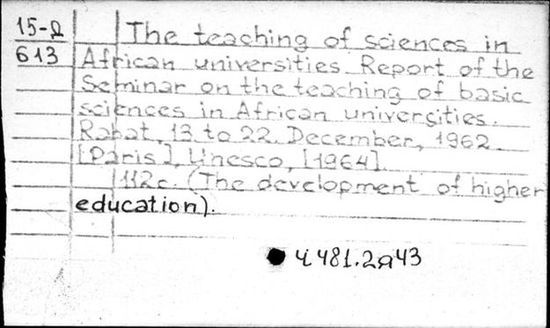 15-Д
613
The teaching of sciences in
African universities. Report of the
Seminar on the teaching of basic
sciences in African universities.
Rabat, 13 to 22. December, 1962.
[Paris], Unesco, [1964].
112c. (The development of higher
education).
Ч 481.2я43